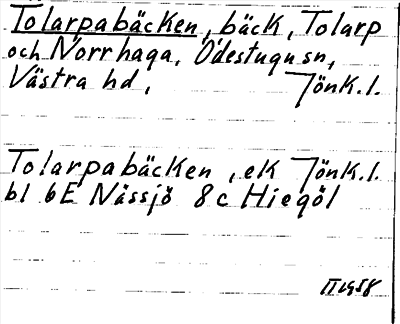 Tolarpabäcken, bäck, Tolarp
och Norrhaga, Ödestugu sn,
Västra hd, Jönk.l.
Tolarpabäcken, ek Jönk.l.
bl 6E Nässjö 8c Hiegöl
II 1958